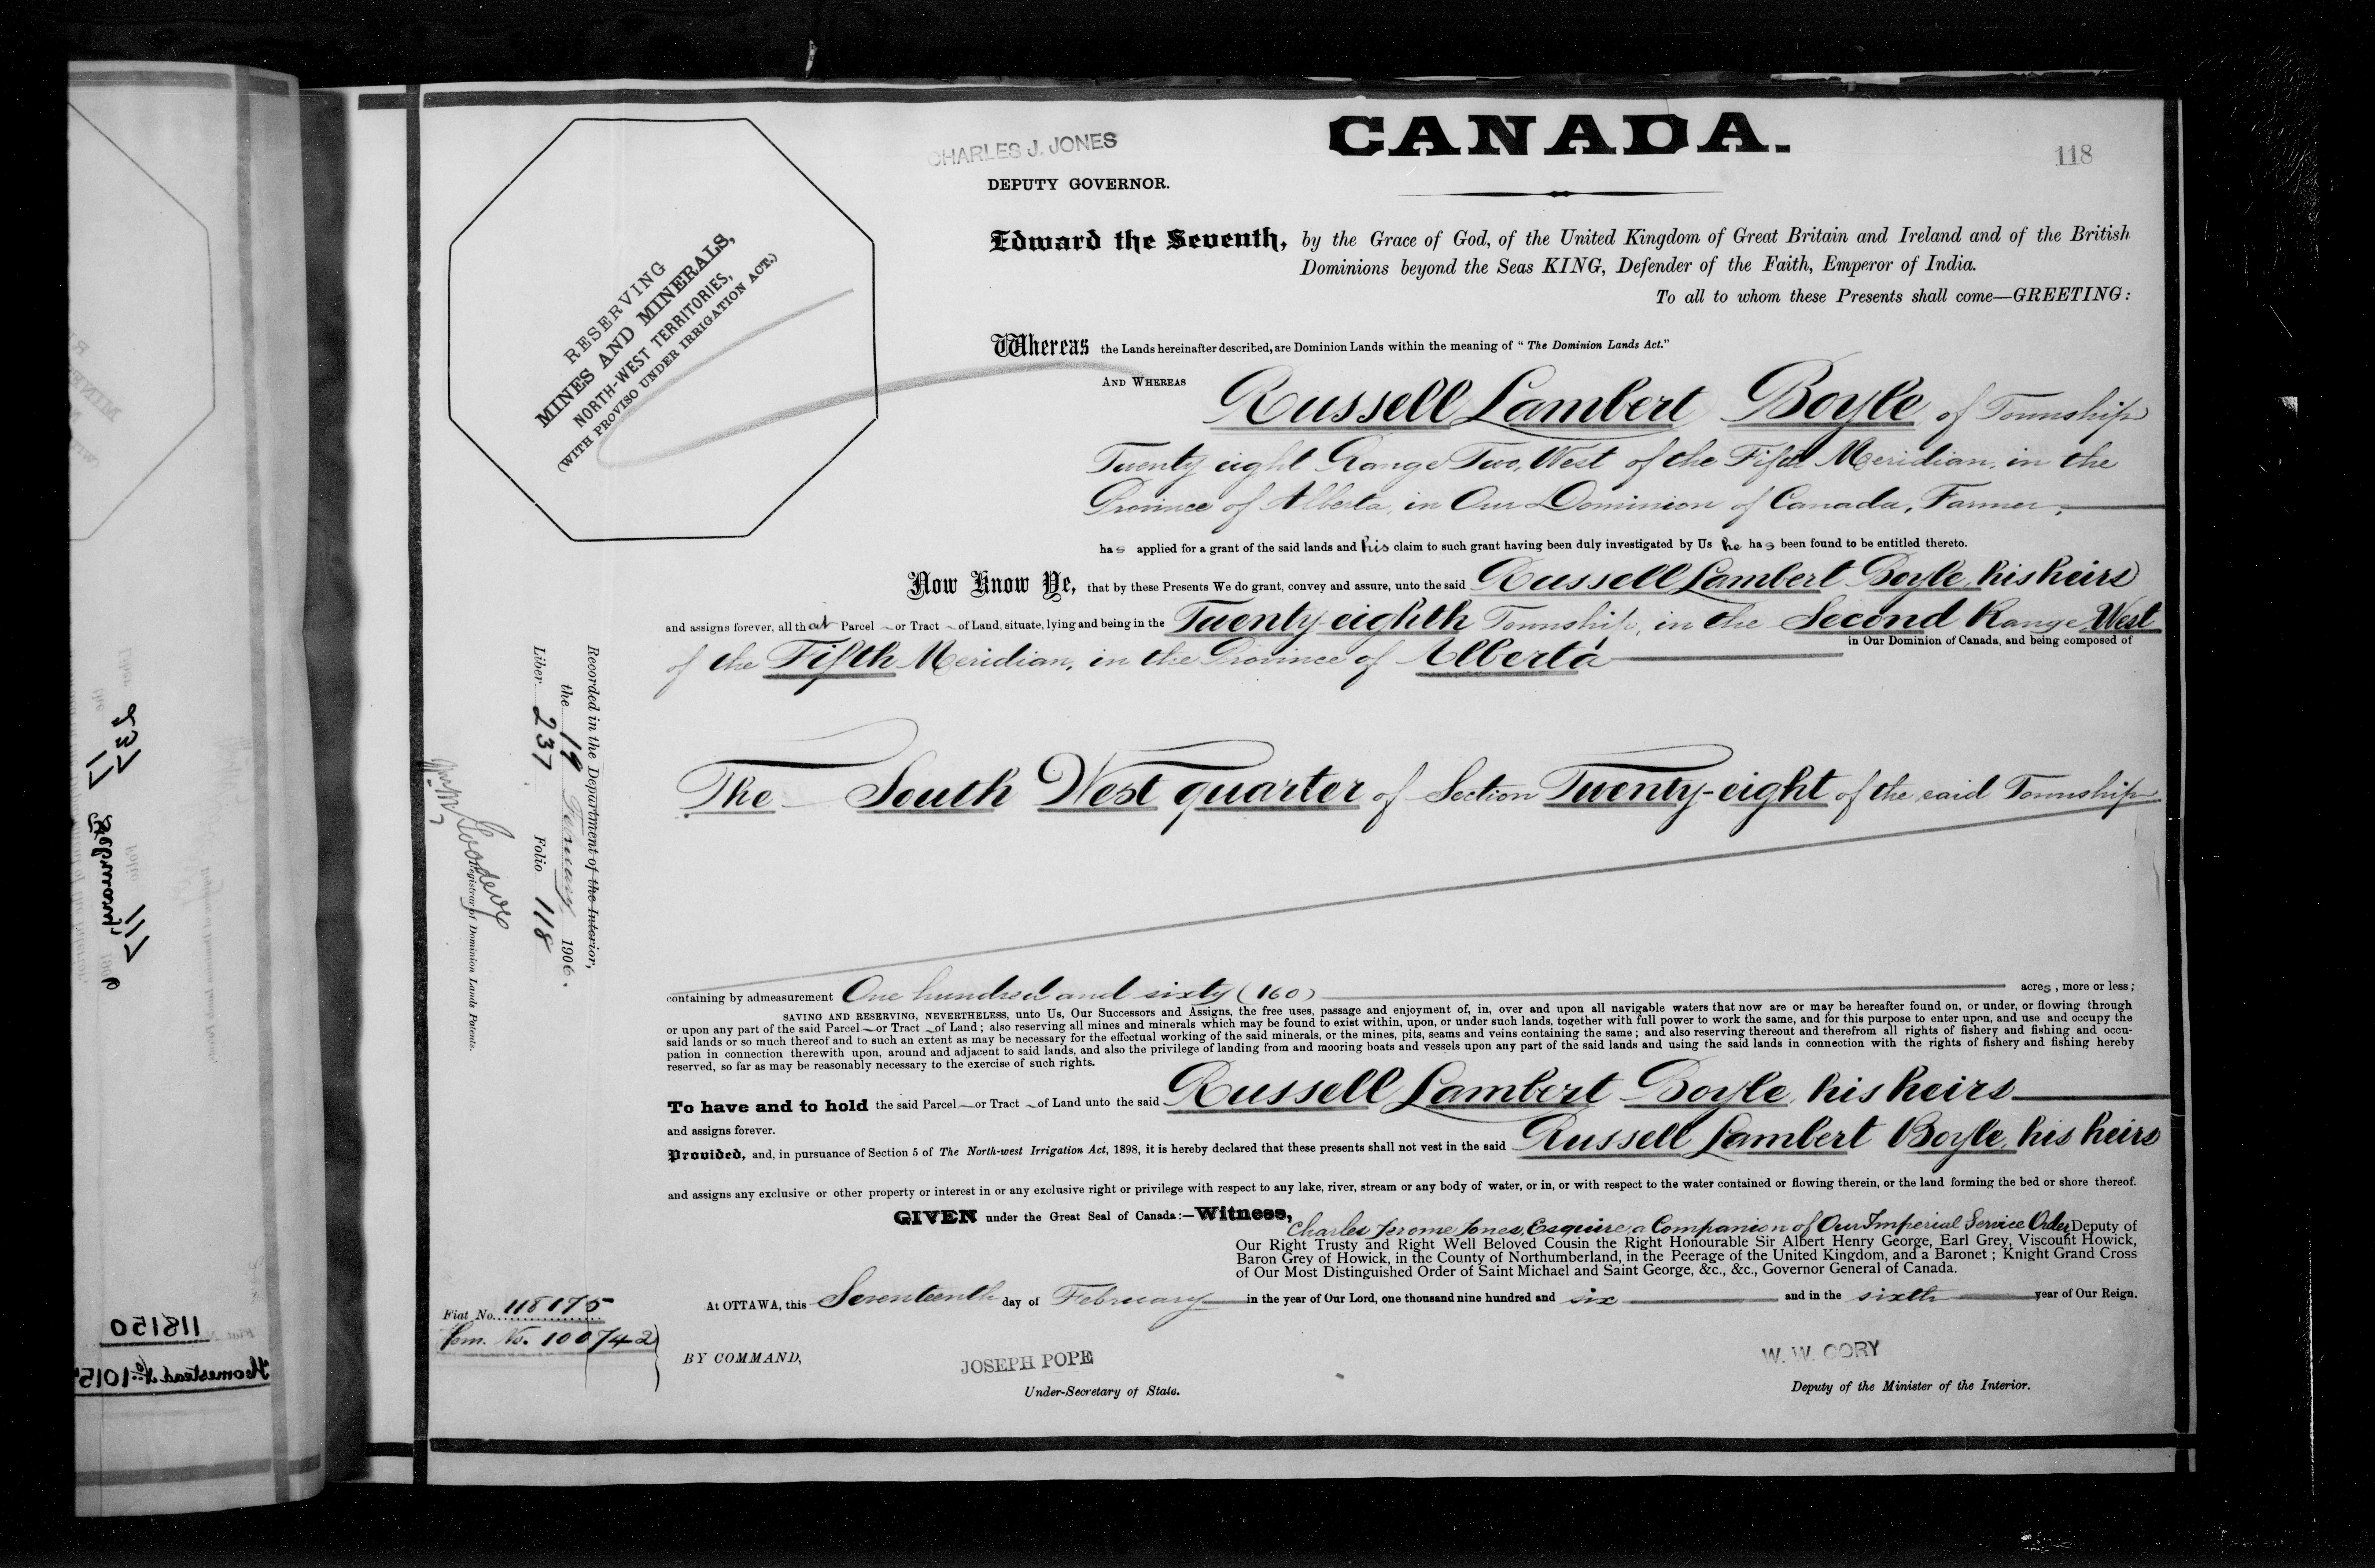 CANADA.
118
CHARLES J. JONES
DEPUTY GOVERNOR.
RESERVING
MINES AND MINERALS,
NORTH-WEST TERRITORIES,
(WITH PROVISO UNDER IRRIGATION ACT.)
Edward the Seventh, by the Grace of God, of the United Kingdom of Great Britain and Ireland and of the British
Dominions beyond the Seas KING, Defender of the Faith, Emperor of India.
To all to whom these Presents shall come—GREETING:
Whereas the Lands hereinafter described, are Dominion Lands within the meaning of "The Dominion Lands Act."
AND WHEREAS Russell Lambert Boyle of Township
Twenty eight Range Two, West of the Fifth Meridian, in the
Province of Alberta, in Our Dominion of Canada, Farmer,
has applied for a grant of the said lands and his claim to such grant having been duly investigated by Us he has been found to be entitled thereto.
Now Know Ye, that by these Presents We do grant, convey and assure, unto the said Russell Lambert Boyle, his heirs
and assigns forever, all that Parcel or Tract of Land, situate, lying and being in the Twenty-eighth Township, in the Second Range West
of the Fifth Meridian, in the Province of Alberta in Our Dominion of Canada, and being composed of
The South West quarter of Section Twenty-eight of the said Township
containing by admeasurement One hundred and sixty (160) acres, more or less;
SAVING AND RESERVING, NEVERTHELESS, unto Us, Our Successors and Assigns, the free uses, passage and enjoyment of, in, over and upon all navigable waters that now are or may be hereafter found on, or under, or flowing through
or upon any part of the said Parcel or Tract of Land; also reserving all mines and minerals which may be found to exist within, upon, or under such lands, together with full power to work the same, and for this purpose to enter upon, and use and occupy the
said lands or so much thereof and to such an extent as may be necessary for the effectual working of the said minerals, or the mines, pits, seams and veins containing the same; and also reserving thereout and therefrom all rights of fishery and fishing and occu-
pation in connection therewith upon, around and adjacent to said lands, and also the privilege of landing from and mooring boats and vessels upon any part of the said lands and using the said lands in connection with the rights of fishery and fishing hereby
reserved, so far as may be reasonably necessary to the exercise of such rights.
To have and to hold the said Parcel or Tract of Land unto the said Russell Lambert Boyle, his heirs
and assigns forever.
Provided, and, in pursuance of Section 5 of The North-west Irrigation Act, 1898, it is hereby declared that these presents shall not vest in the said Russell Lambert Boyle, his heirs
and assigns any exclusive or other property or interest in or any exclusive right or privilege with respect to any lake, river, stream or any body of water, or in, or with respect to the water contained or flowing therein, or the land forming the bed or shore thereof.
GIVEN under the Great Seal of Canada:—Witness,
Charles Jerome Jones, Esquire, a Companion of Our Imperial Service Order, Deputy of
Our Right Trusty and Right Well Beloved Cousin the Right Honourable Sir Albert Henry George, Earl Grey, Viscount Howick,
Baron Grey of Howick, in the County of Northumberland, in the Peerage of the United Kingdom, and a Baronet; Knight Grand Cross
of Our Most Distinguished Order of Saint Michael and Saint George, &c., &c., Governor General of Canada.
At OTTAWA, this Seventeenth day of February in the year of Our Lord, one thousand nine hundred and six and in the sixth year of Our Reign.
BY COMMAND,
JOSEPH POPE
Under-Secretary of State.
W. W. CORY
Deputy of the Minister of the Interior.
Fiat No. 118175
Hom. No. 100742
Recorded in the Department of the Interior,
the 19 February 1906.
Liber 237 Folio 118
Registrar of Dominion Lands Patents.
237
117
118150